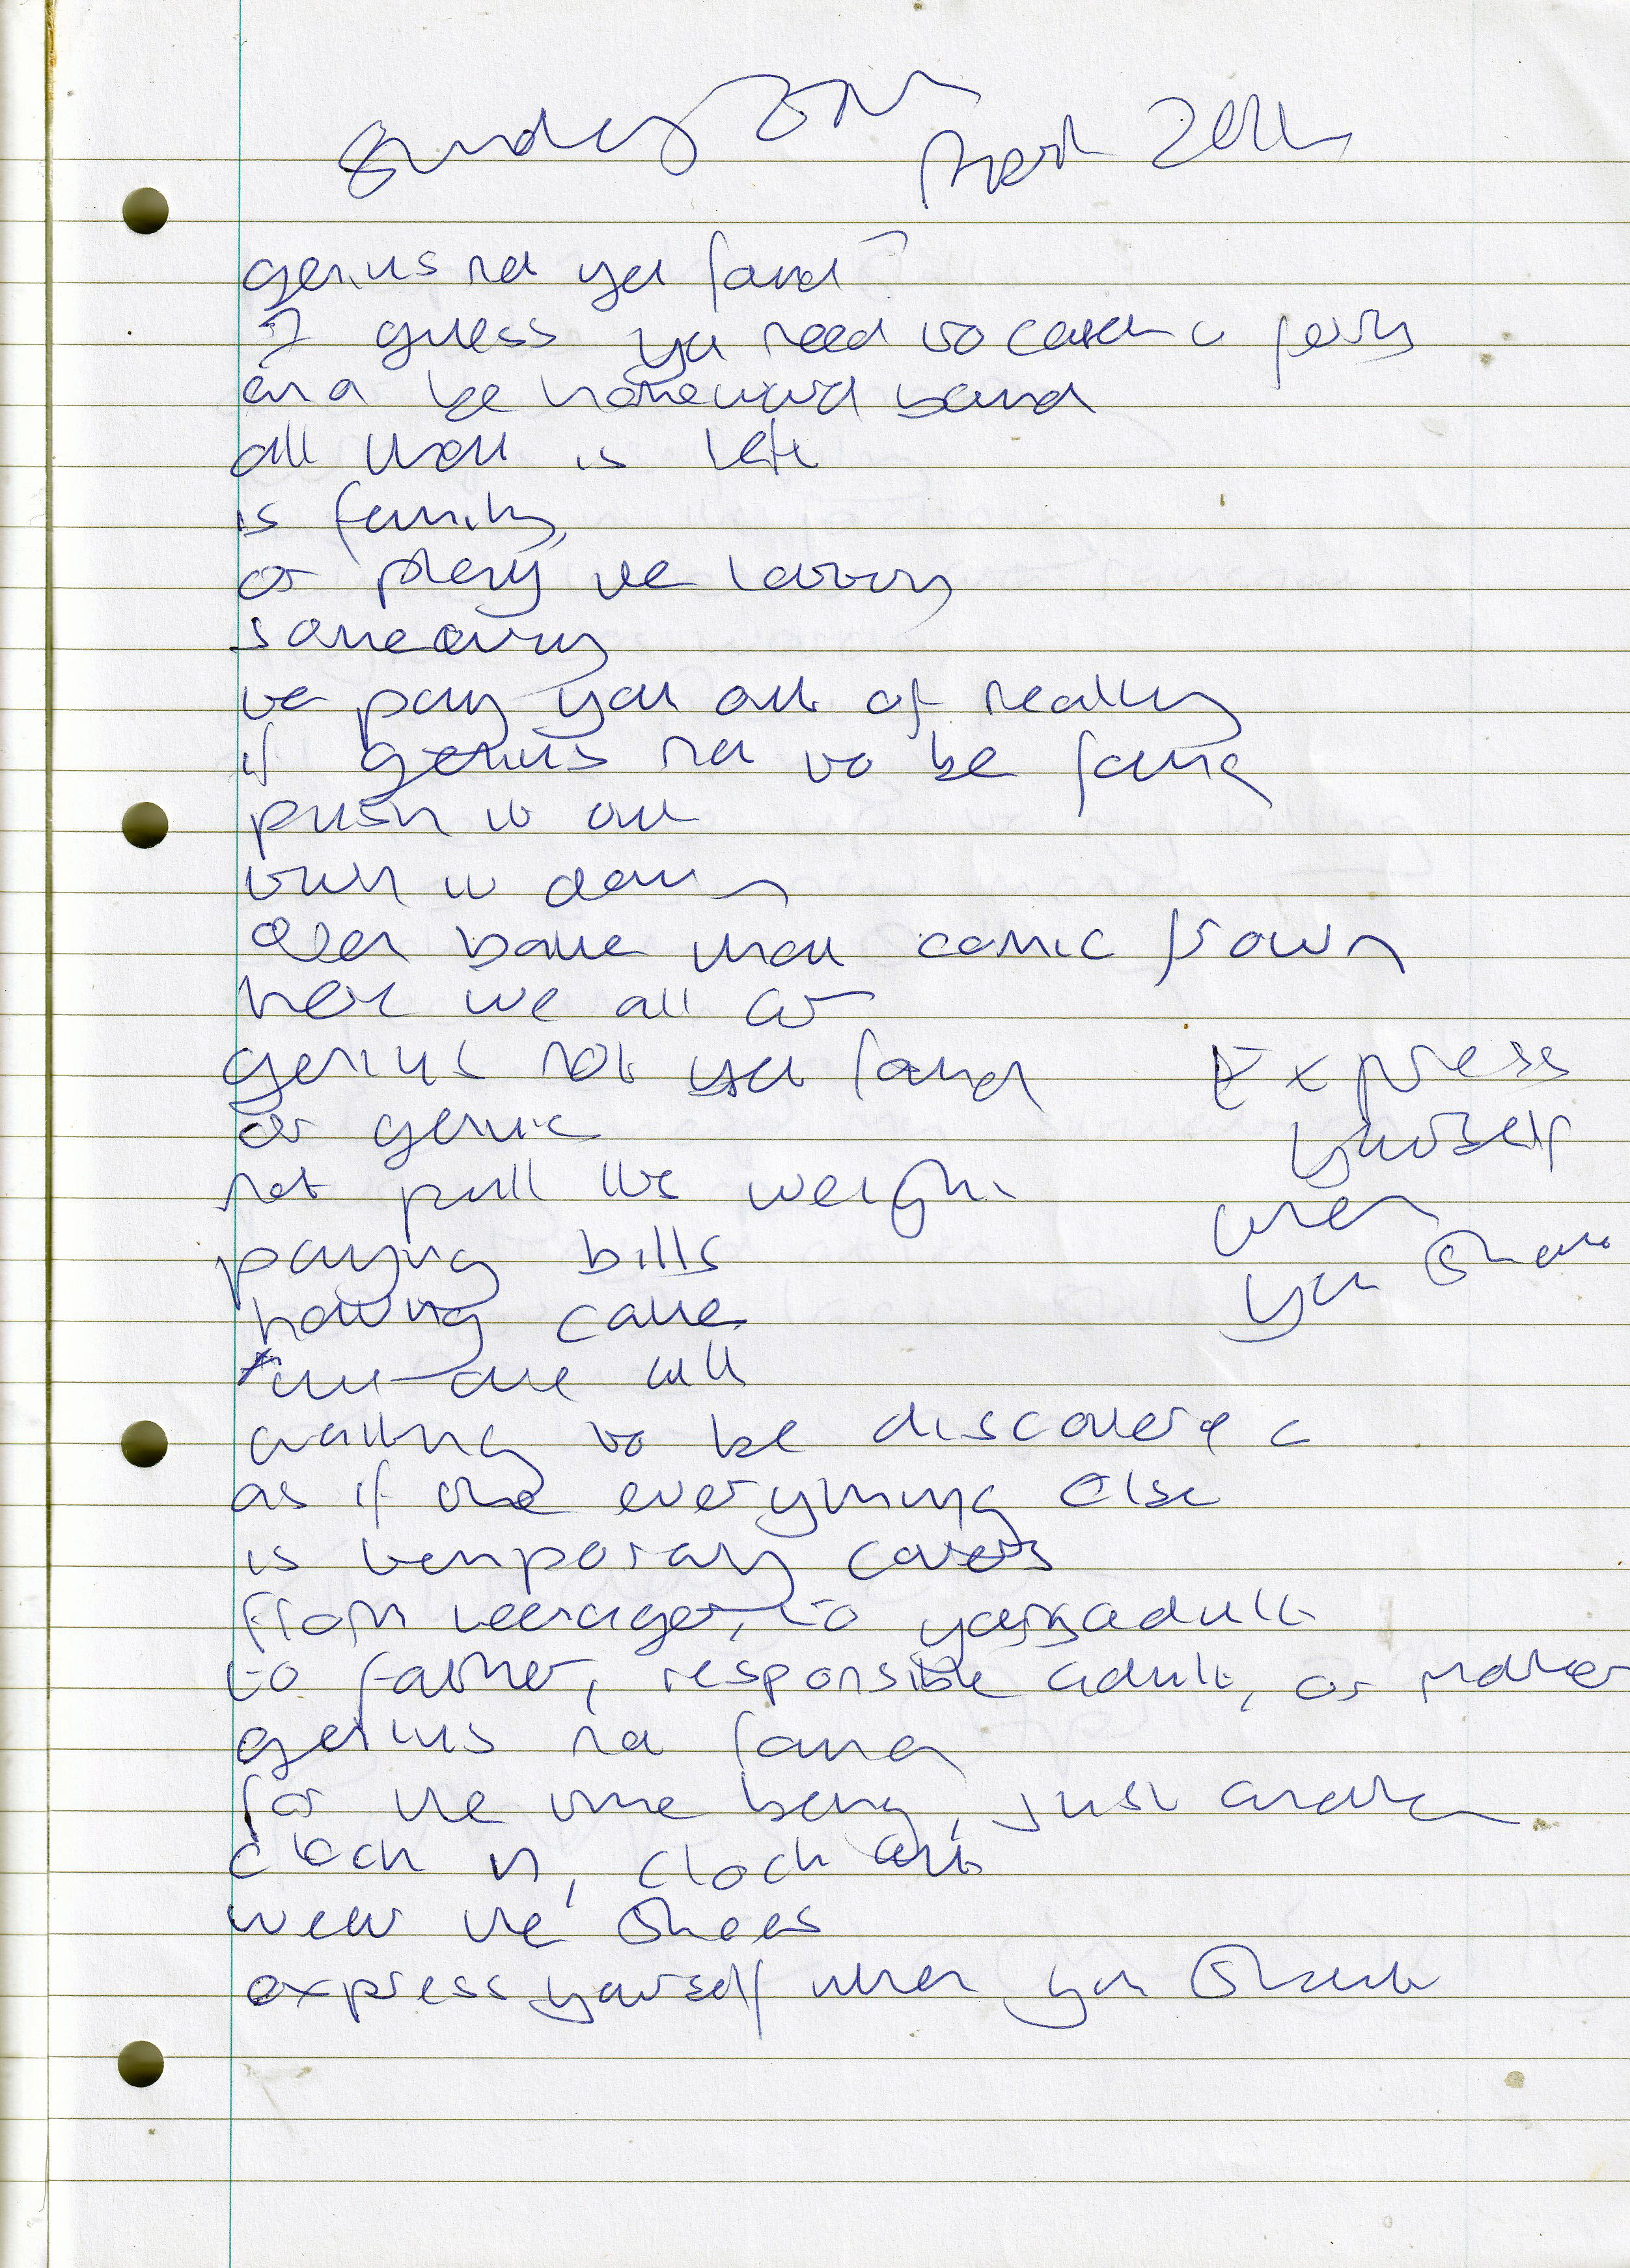 Sunday April 2011
genius not yet found?
I guess you need to catch a ferry
and be homeward bound
all that is left
is family,
or play the lottery
something
to pay you out of reality
if genius not to be found
push it out
turn it down
that comic frown
here we all are
genius not yet found
or genie
not pull its weight
paying bills
having cake
time will
waiting to be discovered
as if the everything else
is temporary covers
from teenager, to young adult
to father, responsible adult, or mother
genius not found
for the time being, just another
clock in, clock out
wear the shoes
express yourself when you shout
Express
yourself
when
you shout